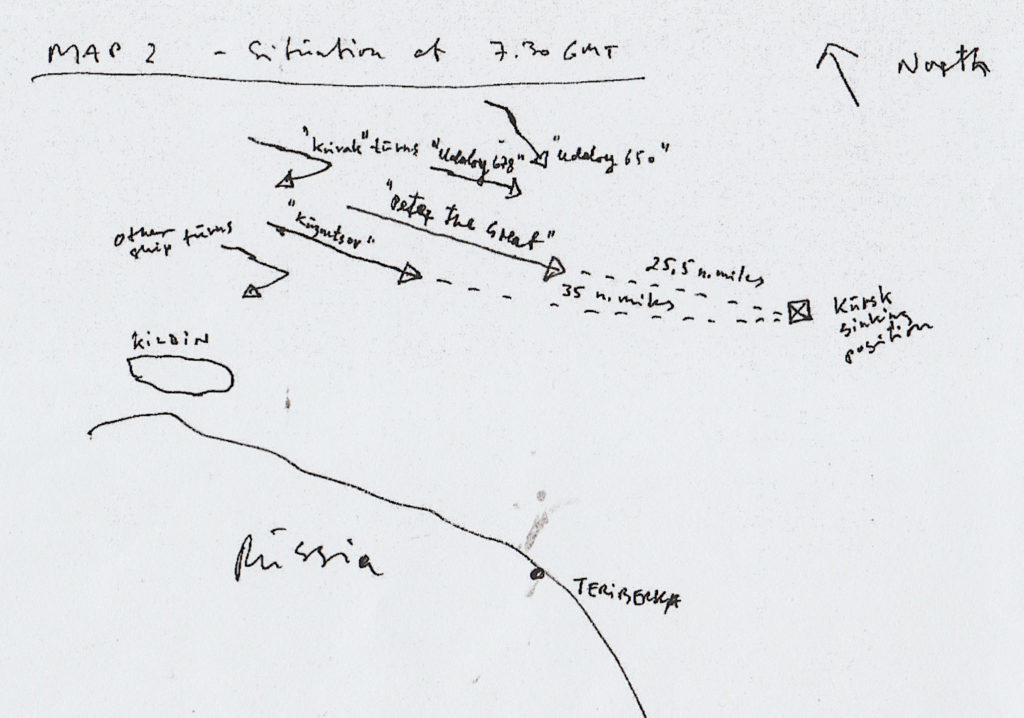 MAP 2 - Situation at 7.30 GMT
North
"Krivak" turns
"Udaloy 678"
"Udaloy 650"
"Peter the Great"
"Kuznutsov"
Other
ship turns
25,5 n.miles
35 n.miles
Kursk
sinking
position
KILDIN
Russia
TERIBERKA